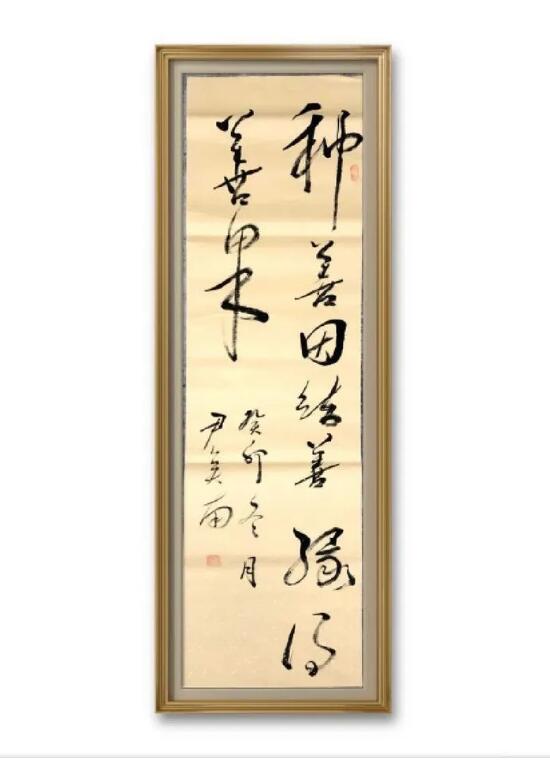 种善因结善缘得
善果
癸卯冬月
尹奠雨